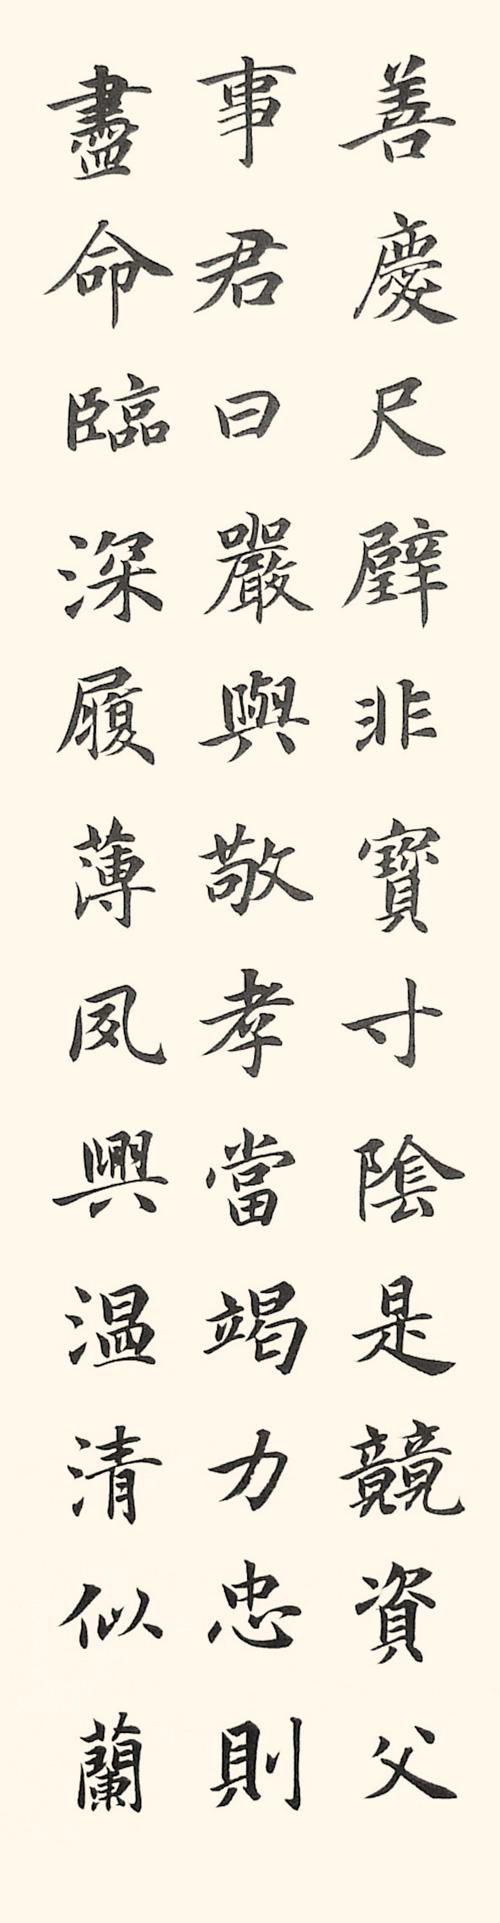 善慶尺璧非寶寸陰是競資父
事君曰嚴與敬孝當竭力忠則
盡命臨深履薄夙興温清似蘭